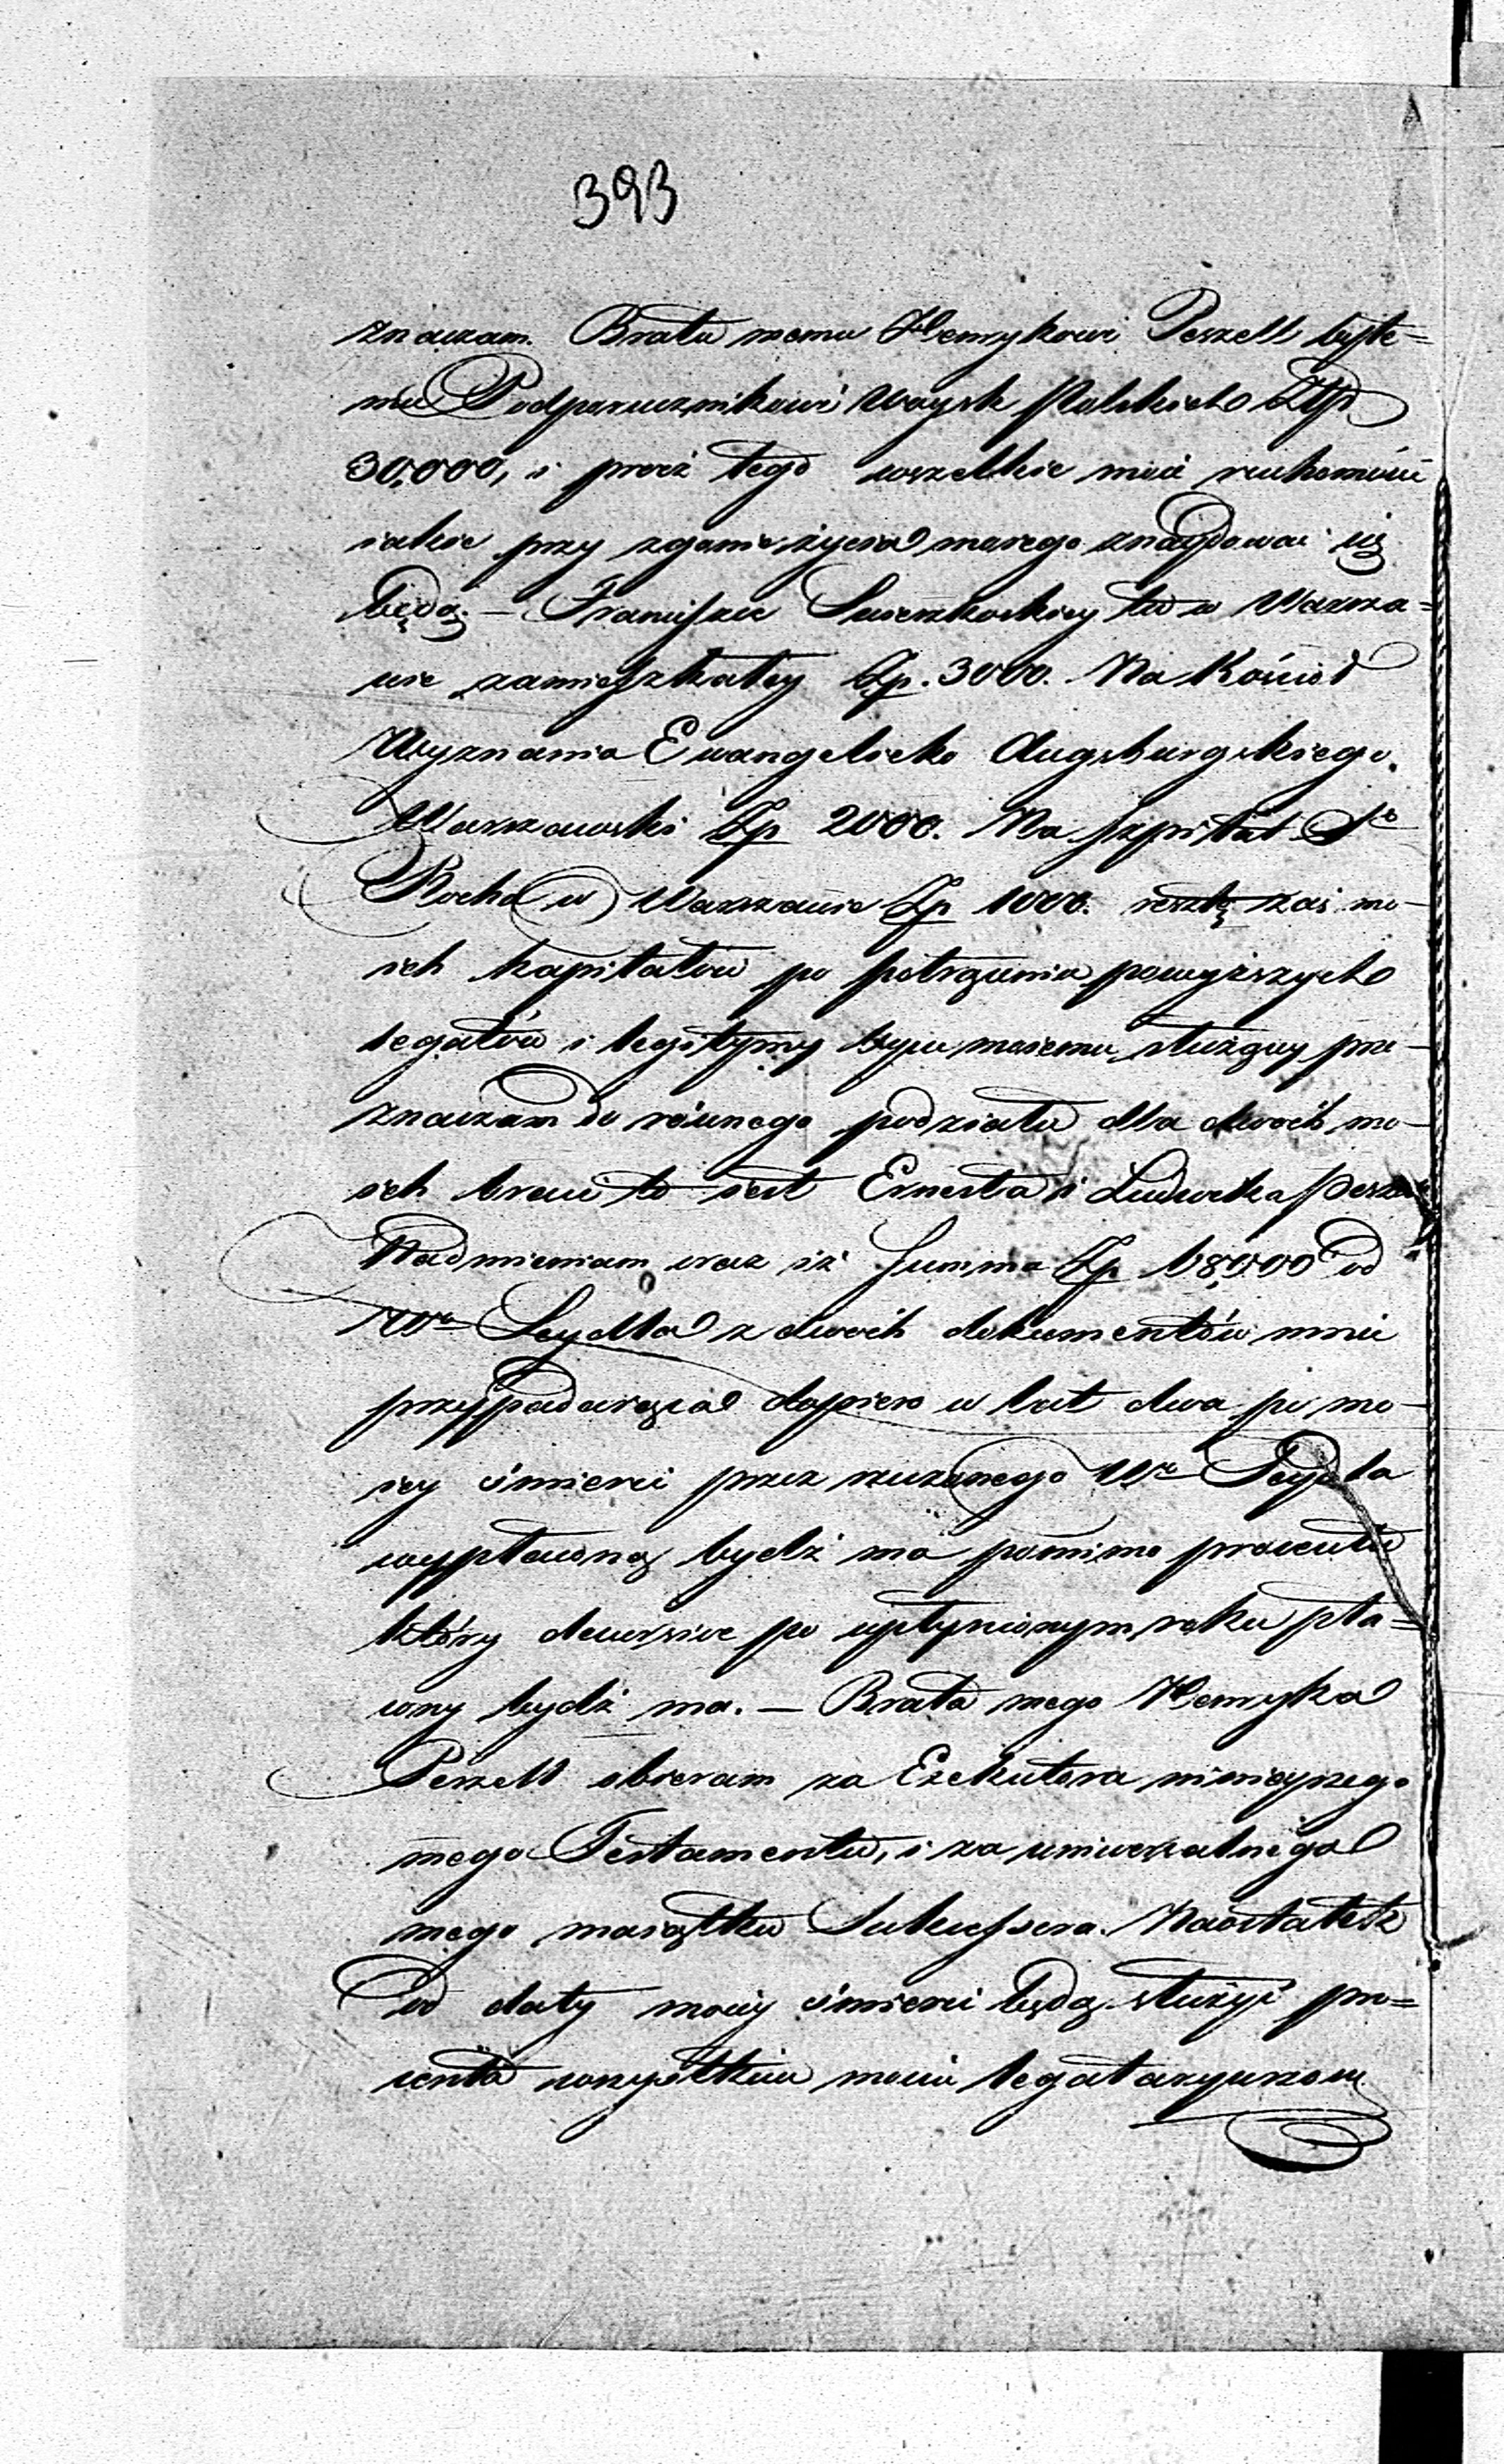 393
znaczam. Bratu memu Henrykowi Peszell byłe=
mu Podporucznikowi Woysk Polskich Złp
30,000, i prócz tego wszelkie moie ruchomości
iakie przy zgonie życia moiego znaydować się
będą. — Franciszce tu w Warsza=
wie zamieszkałey Zp. 3000. Na Kościół
Wyznania Ewangelicko Augsburgskiego
Warszawski Zp 2000. Na szpital Sgo
Rocha w Warszawie Zp 1000. resztę zaś mo-
ich kapitałów po potrąceniu powyższych
legatów i legitymy Oycu moiemu służącey prze-
znaczam do równego podziału dla dwóch mo-
ich braci to iest Ernesta i Ludwika Pesze
Nadmieniam oraz iż Summa Zp 18,000 od
Wgo Seydla z dwóch dokumentów mnie
przypadaiąca dopiero w lat dwa po mo-
iey śmierci przez rzeczonego Wgo Seydla
wypłaconą bydź ma pomimo procentu
który decursive po upłynionym roku pła=
cony bydź ma. — Brata mego Henryka
Peszell obieram za Exekutora ninieyszego
mego Testamentu, i za uniwersalnego
mego maiątku Sukcessora. Naostatek
od daty moiey śmierci będą służyć pro=
centa wszystkim moim legataryuszom